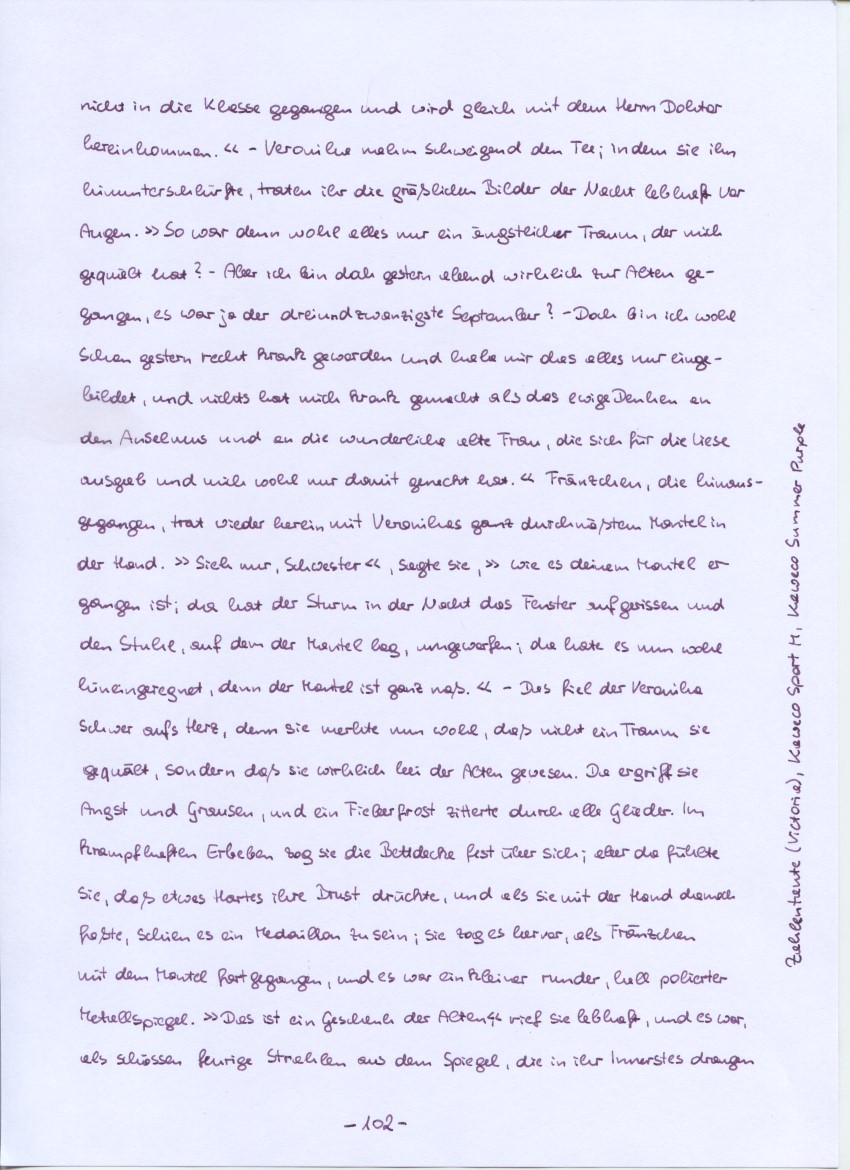 nicht in die Klasse gegangen und wird gleich mit dem Herrn Doktor
hereinkommen.« – Veronika nahm schweigend den Tee; indem sie ihn
hinunterschlürfte, traten ihr die gräßlichen Bilder der Nacht lebhaft vor
Augen. »So war denn wohl alles nur ein ängstlicher Traum, der mich
gequält hat? – Aber ich bin doch gestern abend wirklich zur Alten ge-
gangen, es war ja der dreiundzwanzigste September? – Doch bin ich wohl
schon gestern recht krank geworden und habe mir das alles nur einge-
bildet, und nichts hat mich krank gemacht als das ewige Denken an
den Anselmus und an die wunderliche alte Frau, die sich für die Liese
ausgab und mich wohl nur damit geneckt hat.« Fränzchen, die hinaus-
gegangen, trat wieder herein mit Veronikas ganz durchnäßtem Mantel in
der Hand. »Sieh nur, Schwester«, sagte sie, »wie es deinem Mantel er
gangen ist; da hat der Sturm in der Nacht das Fenster aufgerissen und
den Stuhl, auf dem der Mantel lag, umgeworfen; da hate es nun wohl
hineingeregnet, denn der Mantel ist ganz naß.« – Das fiel der Veronika
schwer aufs Herz, denn sie merkte nun wohl, daß nicht ein Traum sie
gequält, sondern daß sie wirklich bei der Alten gewesen. Da ergriff sie
Angst und Grausen, und ein Fieberfrost zitterte durch alle Glieder. Im
krampfhaften Erbeben zog sie die Bettdecke fest über sich; aber da fühlte
sie, daß etwas Hartes ihre Brust drückte, und als sie mit der Hand danach
faßte, schien es ein Medaillon zu sein; sie zog es hervor, als Fränzchen
mit dem Mantel fortgegangen, und es war ein kleiner runder, hell polierter
Metallspiegel. »Das ist ein Geschenk der Alten«, rief sie lebhaft, und es war,
als schössen feurige Strahlen aus dem Spiegel, die in ihr Innerstes drangen
–102–
Zahlentante (Victoria), Kaweco Sport M, Kaweco Summer Purple